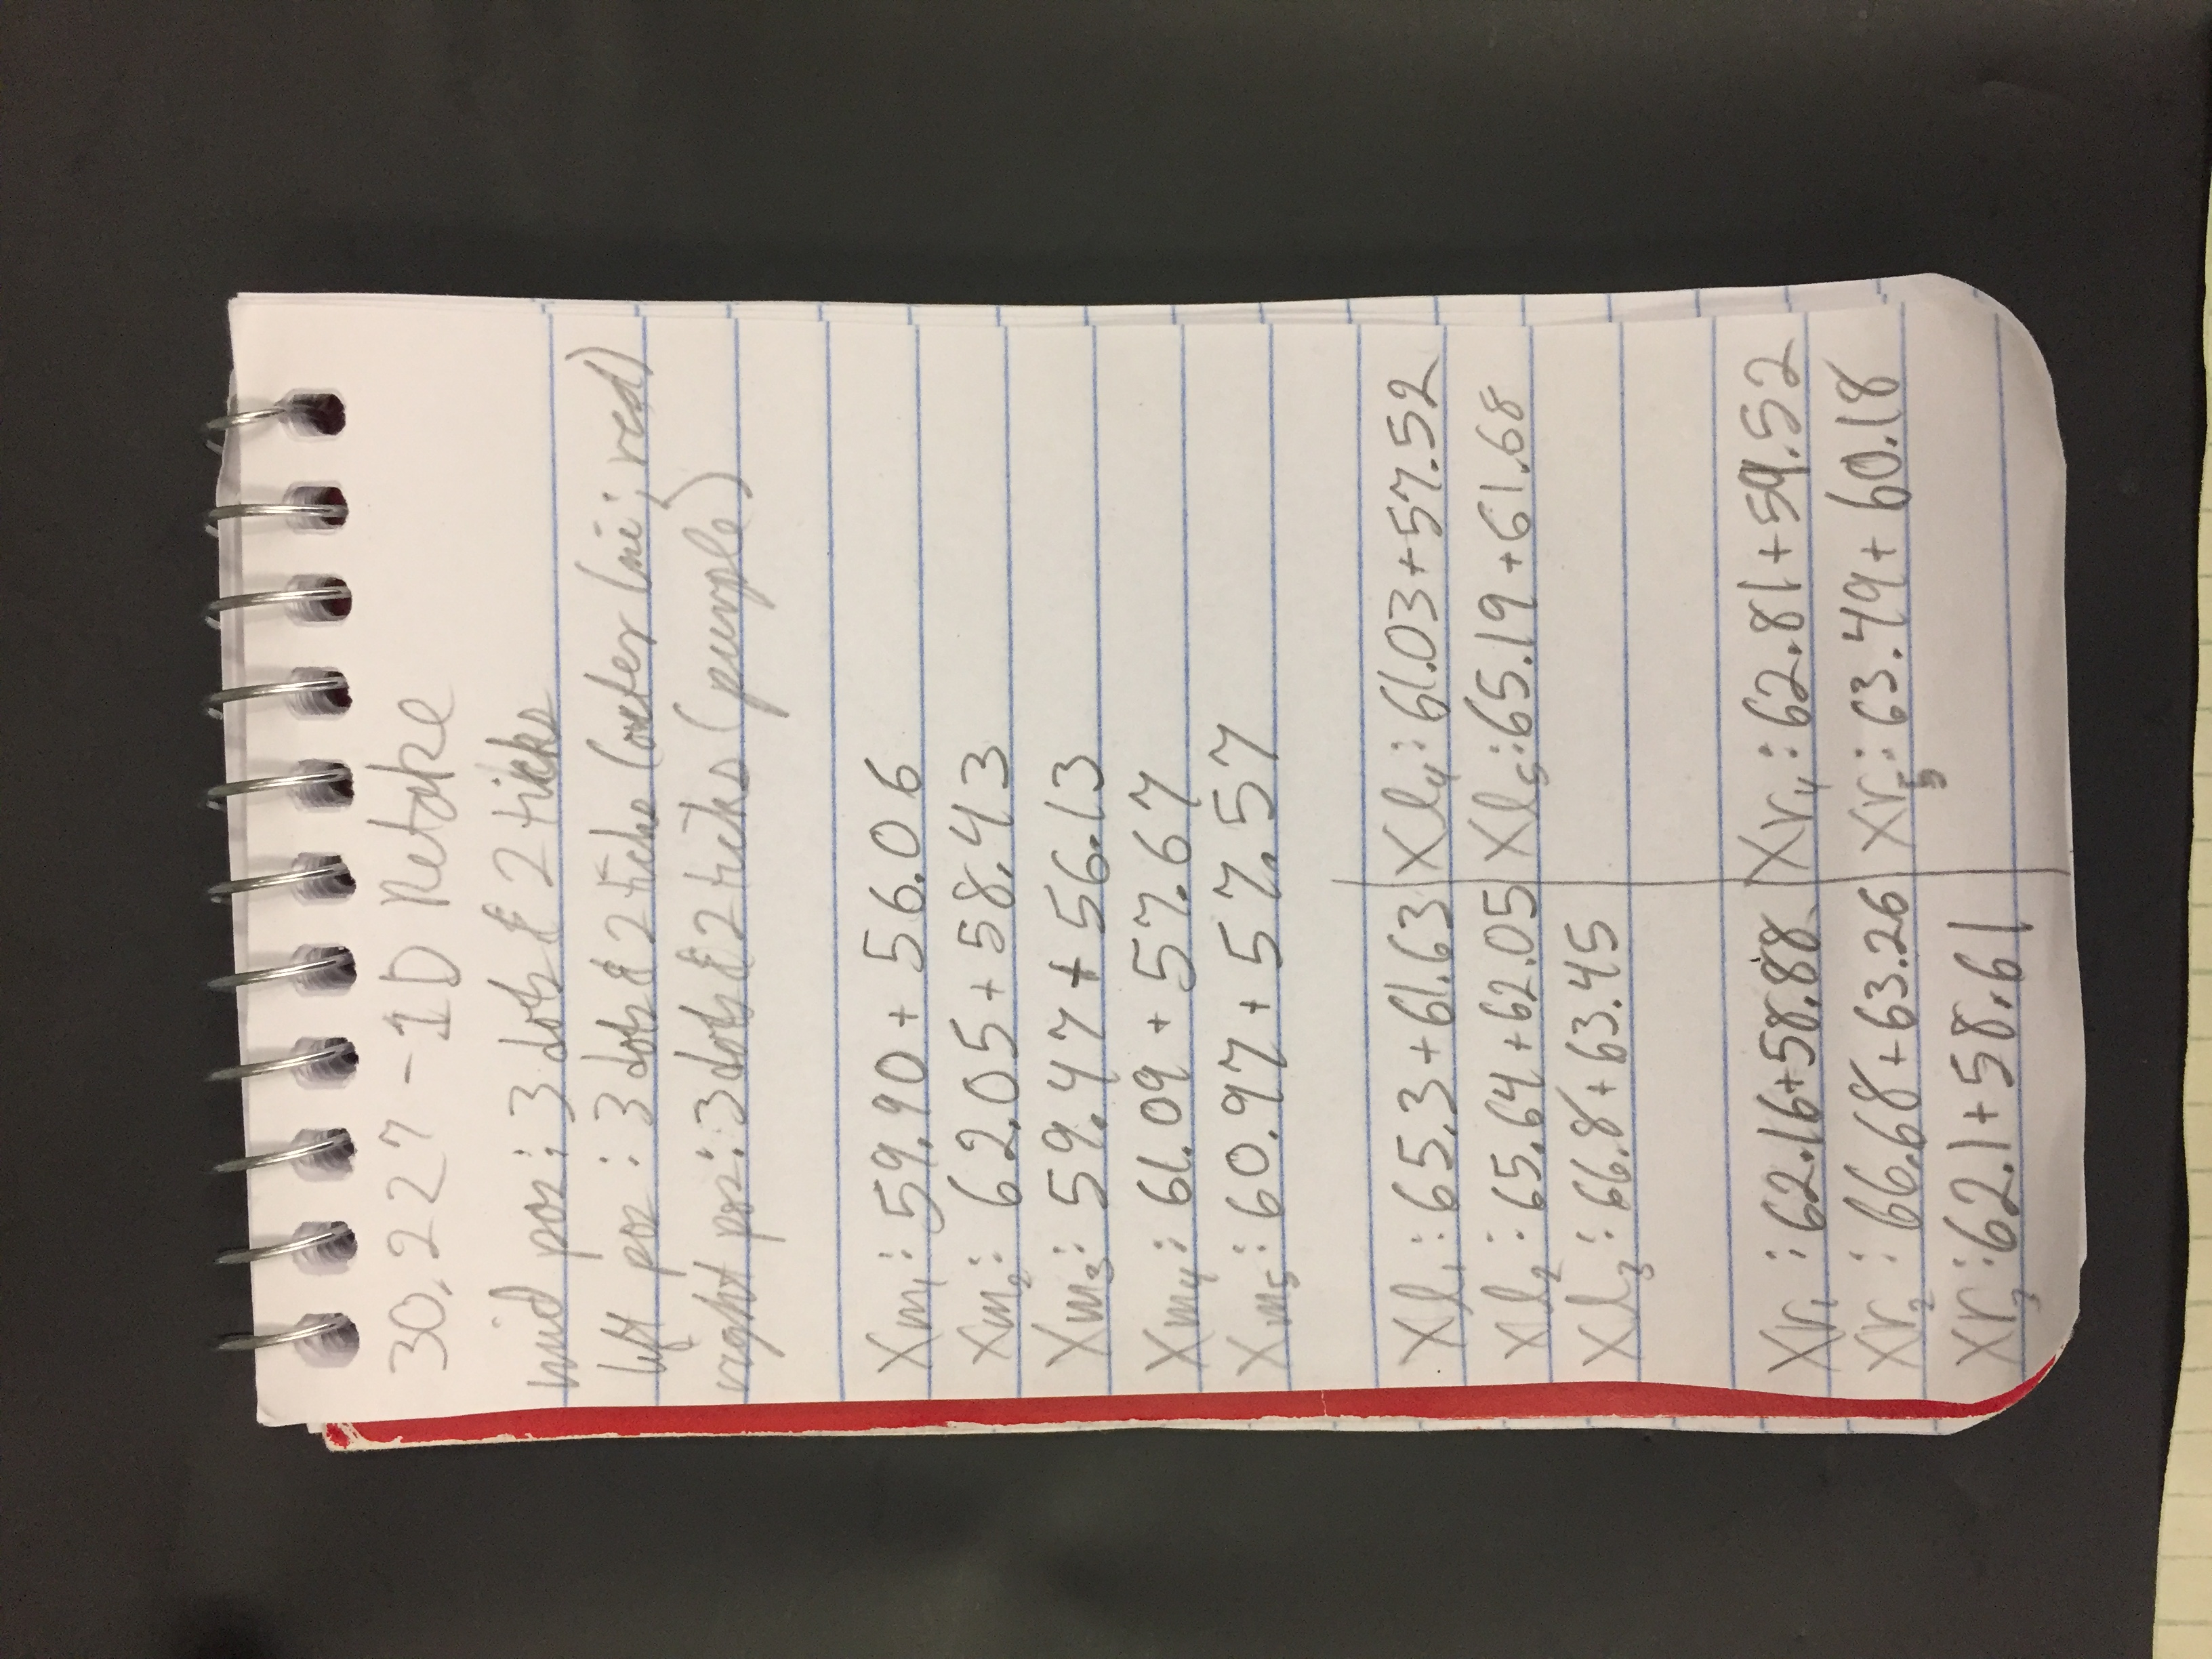 30.227 - 1D Retake
mid pos: 3 dots & 2 ticks
left pos: 3 dots & 2 ticks (outer line; red)
right pos: 3 dots & 2 ticks (purple)
Xm1: 59.90 + 56.06
Xm2: 62.05 + 58.43
Xm3: 59.47 + 56.13
Xm4: 61.09 + 57.67
Xm5: 60.97 + 57.57
Xl1: 65.3 + 61.63
Xl2: 65.64 + 62.05
Xl3: 66.8 + 63.45
Xl4: 61.03 + 57.52
Xl5: 65.19 + 61.68
Xr1: 62.16 + 58.88
Xr2: 66.68 + 63.26
Xr3: 62.1 + 58.61
Xr4: 62.81 + 59.52
Xr5: 63.49 + 60.18